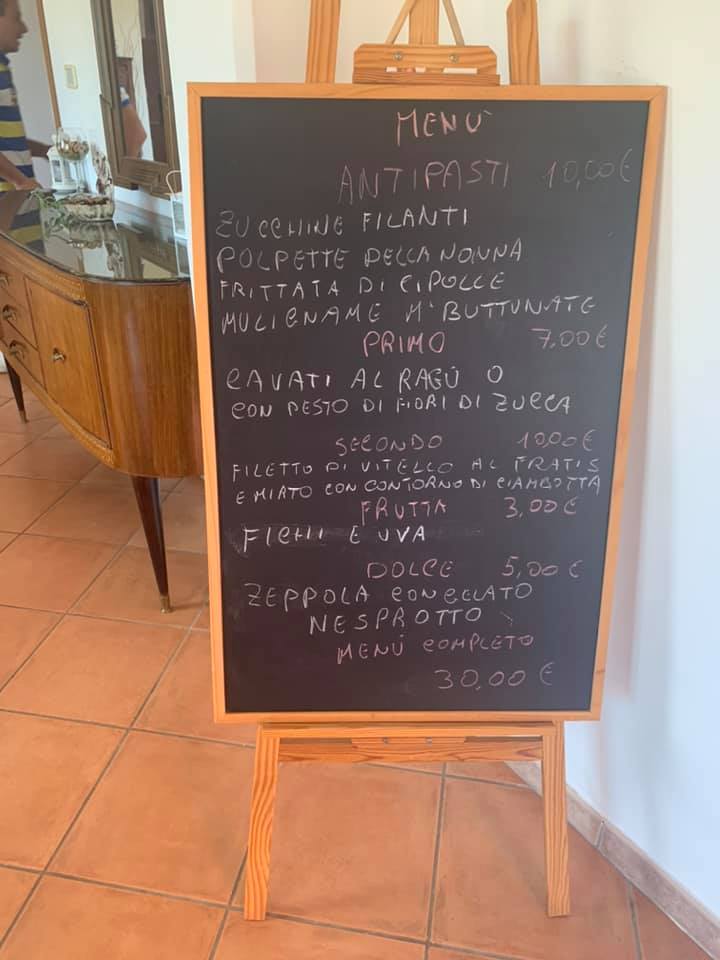 MENÙ
ANTIPASTI 10,00€
ZUCCHINE FILANTI
POLPETTE DELLA NONNA
FRITTATA DI CIPOLLE
MULIGNAME M'BUTTUNATE
PRIMO 7,00€
CAVATI AL RAGÙ O
CON PESTO DI FIORI DI ZUCCA
SECONDO 10,00€
FILETTO DI VITELLO AL
CON CONTORNO DI CIAMBOTTA
FRUTTA 3,00€
FICHI E UVA
DOLCE 5,00€
ZEPPOLA CON GELATO
NESPROTTO
MENÙ COMPLETO
30,00€